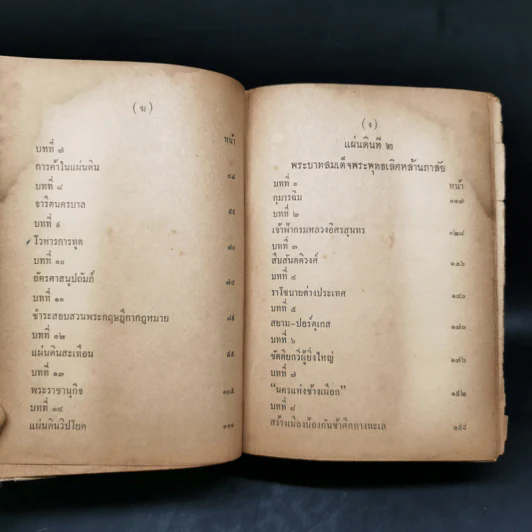 (ฆ)
หน้า
บทที่ ๗
การค้าในแผ่นดิน
บทที่ ๘
จารีตนครบาล ๕๕
บทที่ ๙
โวหารการทูต ๗๐
บทที่ ๑๐
อัครศาสนูปถัมภ์ ๗๘
บทที่ ๑๑
ชำระสอบสวนพระกฤษฎีกากฎหมาย ๘๕
บทที่ ๑๒
แผ่นดินสะเทือน ๙๕
บทที่ ๑๓
พระราชานุกิจ ๑๐๕
บทที่ ๑๔
แผ่นดินวิปโยค ๑๑๑
(ง)
แผ่นดินที่ ๒
พระบาทสมเด็จพระพุทธเลิศหล้านภาลัย
บทที่ ๑ หน้า
กุมรฉิม ๑๑๗
บทที่ ๒
เจ้าฟ้ากรมหลวงอิศรสุนทร ๑๒๘
บทที่ ๓
สืบสันตติวงศ์ ๑๓๖
บทที่ ๔
ราโชบายต่างประเทศ ๑๔๐
บทที่ ๕
สยาม-ปอร์ตุเกส ๑๗๐
บทที่ ๖
ขัตติยกวีผู้ยิ่งใหญ่ ๑๗๖
บทที่ ๗
“นครแห่งช้างเผือก” ๑๕๒
บทที่ ๘
สร้างเมืองป้องกันข้าศึกทางทะเล ๑๙๘